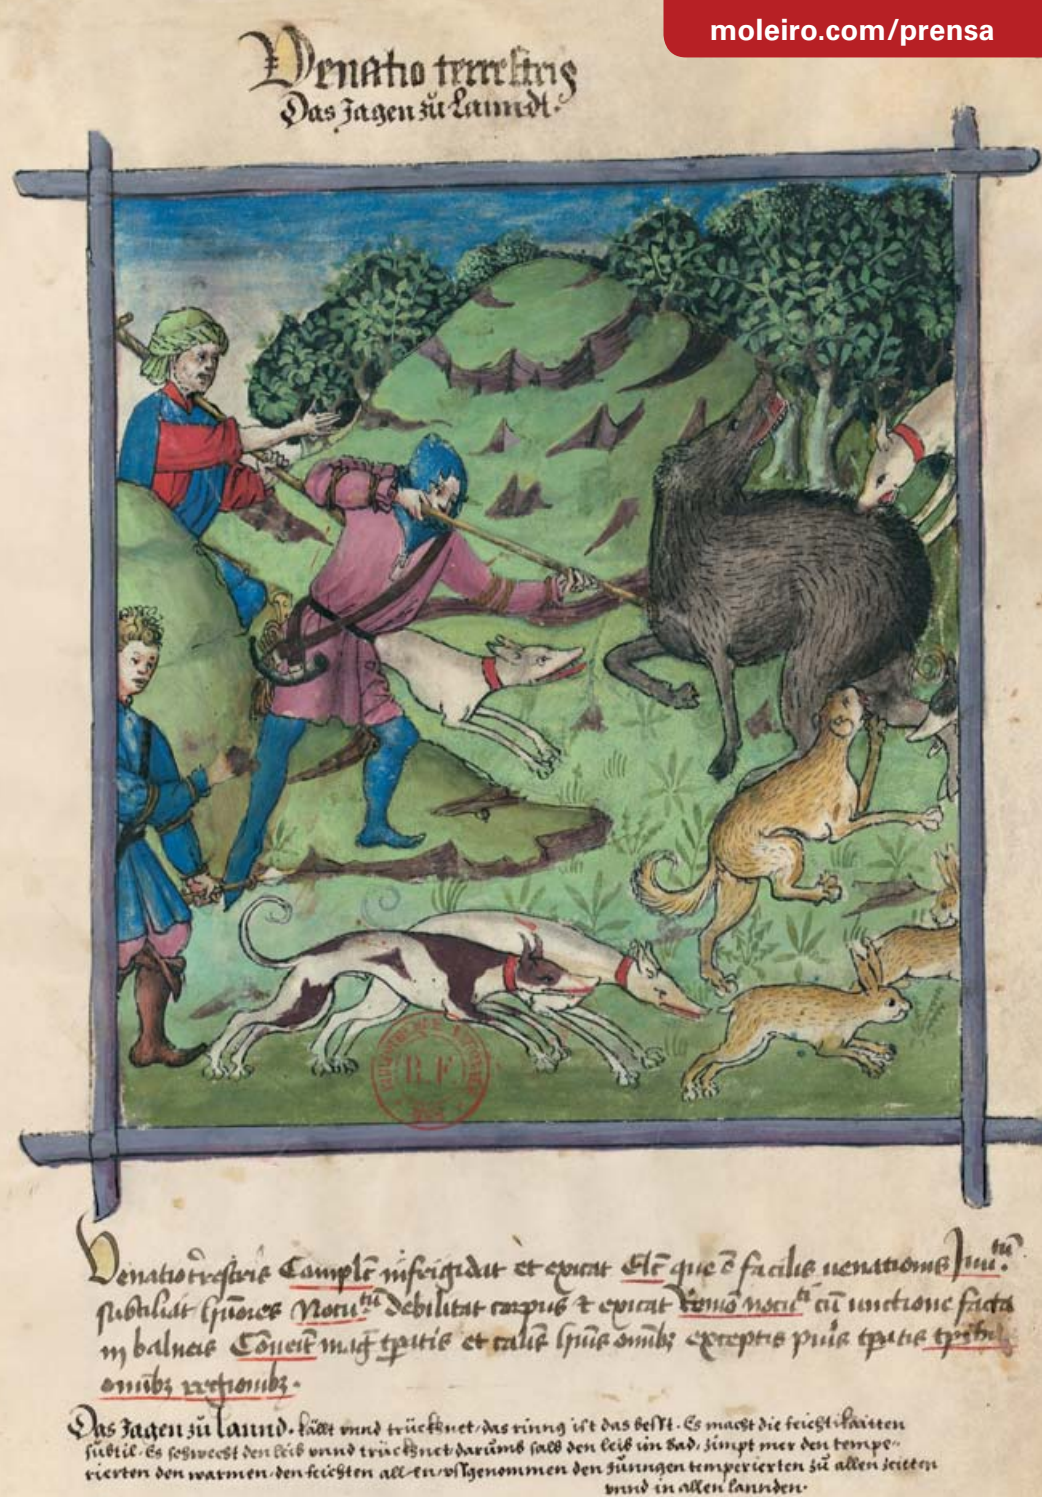 moleiro.com/prensa
Venatio terrestris
Das Jagen zů Lanndt.
R.F.
Venatio trestris Complẽ infrigidat et exicat Elc̃ que ẽ facilis uenationis Juuᵗũ
subtiliat hũores Nocuᵗũ debilitat corpus & exicat Remõ nocuᵗi cũ unctione facta
in balneis Conueĩt mag̃ tꝑatis et calis hũis omnibꝫ exceptis tꝑatis
omnibꝫ regionibꝫ.
Das Jagen zů lannd. källt vnnd trückhnet. das rinng ist das besst. Es macht die feichtikaitten
subtil. Es schwecht den leib vnnd trückhnet darumb salb den leib im Bad. zimpt mer den tempe-
rierten den warmen. den feichten allen vssgenommen den Junngen temperierten zů allen zeitten
vnnd in allen lannden.